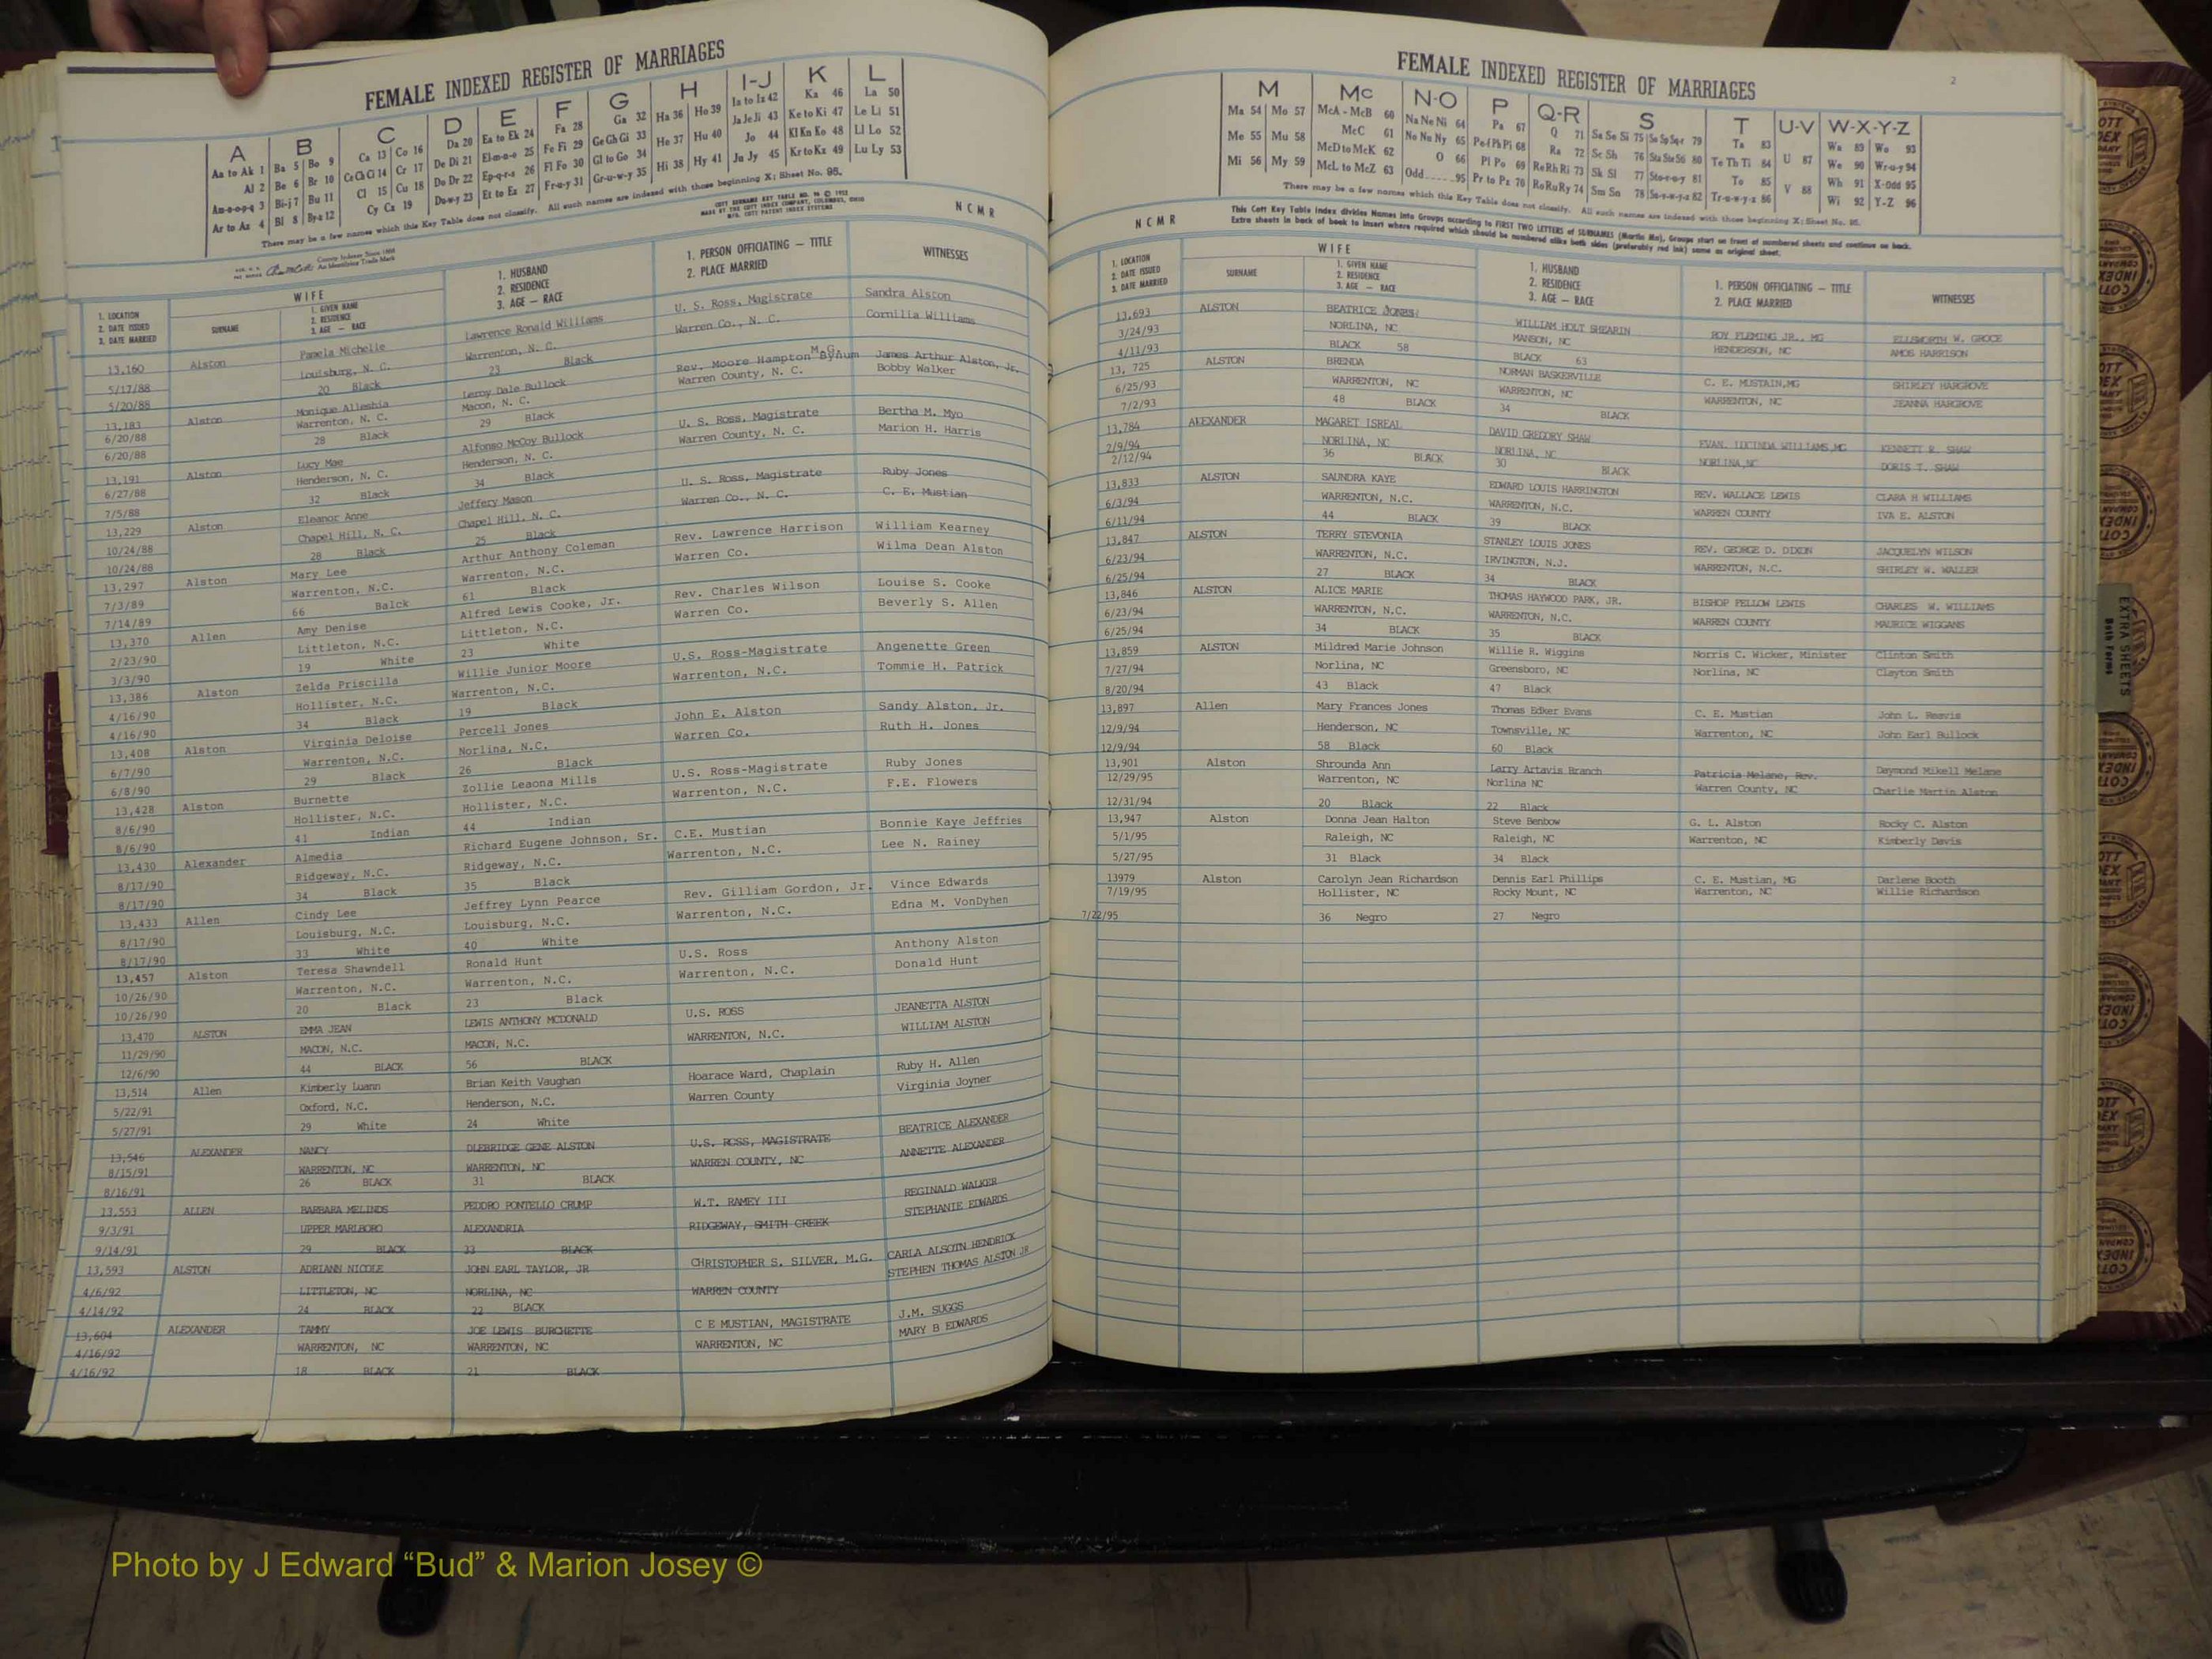 FEMALE INDEXED REGISTER OF MARRIAGES
A B C D E F G H I-J K L
Aa to Ak 1 Ba 5 Bo 9 Ca 13 Co 16 Da 20 Ea to Ek 24 Fa 28 Ga 32 Ha 36 Ho 39 Ia to Iz 42 Ka 46 La 50
Al 2 Be 6 Br 10 Ce Ch Ci 14 Cr 17 De Di 21 El-m-n-o 25 Fe Fi 29 Ge Gh Gi 33 He 37 Hu 40 Ja Je Ji 43 Ke to Ki 47 Le Li 51
Am-n-o-p-q 3 Bi-j 7 Bu 11 Cl 15 Cu 18 Do Dr 22 Ep-q-r-s 26 Fl Fo 30 Gl to Go 34 Hi 38 Hy 41 Jo 44 Kl Kn Ko 48 Ll Lo 52
Ar to Az 4 Bl 8 By-z 12 Cy Cz 19 Du-w-y 23 Et to Ez 27 Fr-u-y 31 Gr-u-w-y 35 Ju Jy 45 Kr to Kz 49 Lu Ly 53
There may be a few names which this Key Table does not classify. All such names are indexed with those beginning X; Sheet No. 95.
County Indexes Since 1888
An Identifying Trade Mark
COTT SURNAME KEY TABLE NO. 96 © 1952
MADE BY THE COTT INDEX COMPANY, COLUMBUS, OHIO
NCMR
1. LOCATION
2. DATE ISSUED
3. DATE MARRIED
WIFE
SURNAME
1. GIVEN NAME
2. RESIDENCE
3. AGE — RACE
1. HUSBAND
2. RESIDENCE
3. AGE — RACE
1. PERSON OFFICIATING — TITLE
2. PLACE MARRIED
WITNESSES
13,160 Alston Pamela Michelle Lawrence Ronald Williams U. S. Ross, Magistrate Sandra Alston
5/17/88 Louisburg, N. C. Warrenton, N. C. Warren Co., N. C. Cornilia Williams
5/20/88 20 Black 23 Black
13,183 Alston Monique Alleshia Leroy Dale Bullock Rev. Moore Hampton Bynum M.G. James Arthur Alston, Jr.
6/20/88 Warrenton, N. C. Macon, N. C. Warren County, N. C. Bobby Walker
6/20/88 28 Black 29 Black
13,191 Alston Lucy Mae Alfonso McCoy Bullock U. S. Ross, Magistrate Bertha M. Myo
6/27/88 Henderson, N. C. Henderson, N. C. Warren County, N. C. Marion H. Harris
7/5/88 32 Black 34 Black
13,229 Alston Eleanor Anne Jeffery Mason U. S. Ross, Magistrate Ruby Jones
10/24/88 Chapel Hill, N. C. Chapel Hill, N. C. Warren Co., N. C. C. E. Mustian
10/24/88 28 Black 25 Black
13,297 Alston Mary Lee Arthur Anthony Coleman Rev. Lawrence Harrison William Kearney
7/3/89 Warrenton, N.C. Warrenton, N.C. Warren Co. Wilma Dean Alston
7/14/89 66 Balck 61 Black
13,370 Allen Amy Denise Alfred Lewis Cooke, Jr. Rev. Charles Wilson Louise S. Cooke
2/23/90 Littleton, N.C. Littleton, N.C. Warren Co. Beverly S. Allen
3/3/90 19 White 23 White
13,386 Alston Zelda Priscilla Willie Junior Moore U.S. Ross-Magistrate Angenette Green
4/16/90 Hollister, N.C. Warrenton, N.C. Warrenton, N.C. Tommie H. Patrick
4/16/90 34 Black 19 Black
13,408 Alston Virginia Deloise Percell Jones John E. Alston Sandy Alston, Jr.
6/7/90 Warrenton, N.C. Norlina, N.C. Warren Co. Ruth H. Jones
6/8/90 29 Black 26 Black
13,428 Alston Burnette Zollie Leaona Mills U.S. Ross-Magistrate Ruby Jones
8/6/90 Hollister, N.C. Hollister, N.C. Warrenton, N.C. F.E. Flowers
8/6/90 41 Indian 44 Indian
13,430 Alexander Almedia Richard Eugene Johnson, Sr. C.E. Mustian Bonnie Kaye Jeffries
8/17/90 Ridgeway, N.C. Ridgeway, N.C. Warrenton, N.C. Lee N. Rainey
8/17/90 34 Black 35 Black
13,433 Allen Cindy Lee Jeffrey Lynn Pearce Rev. Gilliam Gordon, Jr. Vince Edwards
8/17/90 Louisburg, N.C. Louisburg, N.C. Warrenton, N.C. Edna M. VonDyhen
8/17/90 33 White 40 White
13,457 Alston Teresa Shawndell Ronald Hunt U.S. Ross Anthony Alston
10/26/90 Warrenton, N.C. Warrenton, N.C. Warrenton, N.C. Donald Hunt
10/26/90 20 Black 23 Black
13,470 ALSTON EMMA JEAN LEWIS ANTHONY MCDONALD U.S. ROSS JEANETTA ALSTON
11/29/90 MACON, N.C. MACON, N.C. WARRENTON, N.C. WILLIAM ALSTON
12/6/90 44 BLACK 56 BLACK
13,514 Allen Kimberly Luann Brian Keith Vaughan Hoarace Ward, Chaplain Ruby H. Allen
5/22/91 Oxford, N.C. Henderson, N.C. Warren County Virginia Joyner
5/27/91 29 White 24 White
13,546 ALEXANDER NANCY DLEBRIDGE GENE ALSTON U.S. ROSS, MAGISTRATE BEATRICE ALEXANDER
8/15/91 WARRENTON, NC WARRENTON, NC WARREN COUNTY, NC ANNETTE ALEXANDER
8/16/91 26 BLACK 31 BLACK
13,553 ALLEN BARBARA MELINDS PEDDRO PONTELLO CRUMP W.T. RAMEY III REGINALD WALKER
9/3/91 UPPER MARLBORO ALEXANDRIA RIDGEWAY, SMITH CREEK STEPHANIE EDWARDS
9/14/91 29 BLACK 33 BLACK
13,593 ALSTON ADRIANN NICOLE JOHN EARL TAYLOR, JR CHRISTOPHER S. SILVER, M.G. CARLA ALSOTN HENDRICK
4/6/92 LITTLETON, NC NORLINA, NC WARREN COUNTY STEPHEN THOMAS ALSTON JR
4/14/92 24 BLACK 22 BLACK
13,604 ALEXANDER TAMMY JOE LEWIS BURCHETTE C E MUSTIAN, MAGISTRATE J.M. SUGGS
4/16/92 WARRENTON, NC WARRENTON, NC WARRENTON, NC MARY B EDWARDS
4/16/92 18 BLACK 21 BLACK
FEMALE INDEXED REGISTER OF MARRIAGES
2
M Mc N-O P Q-R S T U-V W-X-Y-Z
Ma 54 Mo 57 McA - McB 60 Na Ne Ni 64 Pa 67 Q 71 Sa Se Si 75 So Sp Sq-r 79 Ta 83 Wa 89 Wo 93
Me 55 Mu 58 McC 61 No Nu Ny 65 Pe-f Ph Pi 68 Ra 72 Sc Sh 76 Sta Ste Sti 80 Te Th Ti 84 U 87 We 90 Wr-u-y 94
Mi 56 My 59 McD to McK 62 O 66 Pl Po 69 Re Rh Ri 73 Sk Sl 77 Sto-r-u-y 81 To 85 Wh 91 X-Odd 95
McL to McZ 63 Odd 95 Pr to Pz 70 Ro Ru Ry 74 Sm Sn 78 Su-v-w-y-z 82 Tr-u-w-y-z 86 V 88 Wi 92 Y-Z 96
There may be a few names which this Key Table does not classify. All such names are indexed with those beginning X; Sheet No. 95.
NCMR
This Cott Key Table Index divides Names into Groups according to FIRST TWO LETTERS of SURNAMES (Martin Ma), Groups start on front of numbered sheets and continue on back.
Extra sheets in back of book to insert where required which should be numbered alike both sides (preferably red ink) same as original sheet.
1. LOCATION
2. DATE ISSUED
3. DATE MARRIED
WIFE
SURNAME
1. GIVEN NAME
2. RESIDENCE
3. AGE — RACE
1. HUSBAND
2. RESIDENCE
3. AGE — RACE
1. PERSON OFFICIATING — TITLE
2. PLACE MARRIED
WITNESSES
13,693 ALSTON BEATRICE JONES WILLIAM HOLT SHEARIN ROY FLEMING JR., MG ELLSWORTH W. GROCE
3/24/93 NORLINA, NC MANSON, NC HENDERSON, NC AMOS HARRISON
4/11/93 BLACK 58 BLACK 63
13, 725 ALSTON BRENDA NORMAN BASKERVILLE C. E. MUSTAIN,MG SHIRLEY HARGROVE
6/25/93 WARRENTON, NC WARRENTON, NC WARRENTON, NC JEANNA HARGROVE
7/2/93 48 BLACK 34 BLACK
13,784 ALEXANDER MAGARET ISREAL DAVID GREGORY SHAW EVAN. LUCINDA WILLIAMS,MG KENNETT R. SHAW
2/9/94 NORLINA, NC NORLINA, NC NORLINA,NC DORIS T. SHAW
2/12/94 36 BLACK 30 BLACK
13,833 ALSTON SAUNDRA KAYE EDWARD LOUIS HARRINGTON REV. WALLACE LEWIS CLARA H WILLIAMS
6/3/94 WARRENTON, N.C. WARRENTON, N.C. WARREN COUNTY IVA E. ALSTON
6/11/94 44 BLACK 39 BLACK
13,847 ALSTON TERRY STEVONIA STANLEY LOUIS JONES REV. GEORGE D. DIXON JACQUELYN WILSON
6/23/94 WARRENTON, N.C. IRVINGTON, N.J. WARRENTON, N.C. SHIRLEY W. WALLER
6/25/94 27 BLACK 34 BLACK
13,846 ALSTON ALICE MARIE THOMAS HAYWOOD PARK, JR. BISHOP FELLOW LEWIS CHARLES W. WILLIAMS
6/23/94 WARRENTON, N.C. WARRENTON, N.C. WARREN COUNTY MAURICE WIGGANS
6/25/94 34 BLACK 35 BLACK
13,859 ALSTON Mildred Marie Johnson Willie R. Wiggins Norris C. Wicker, Minister Clinton Smith
7/27/94 Norlina, NC Greensboro, NC Norlina, NC Clayton Smith
8/20/94 43 Black 47 Black
13,897 Allen Mary Frances Jones Thomas Edker Evans C. E. Mustian John L. Reavis
12/9/94 Henderson, NC Townsville, NC Warrenton, NC John Earl Bullock
12/9/94 58 Black 60 Black
13,901 Alston Shrounda Ann Larry Artavis Branch Patricia Melane, Rev. Daymond Mikell Melane
12/29/95 Warrenton, NC Norlina NC Warren County, NC Charlie Martin Alston
12/31/94 20 Black 22 Black
13,947 Alston Donna Jean Halton Steve Benbow G. L. Alston Rocky C. Alston
5/1/95 Raleigh, NC Raleigh, NC Warrenton, NC Kimberly Davis
5/27/95 31 Black 34 Black
13979 Alston Carolyn Jean Richardson Dennis Earl Phillips C. E. Mustian, MG Darlene Booth
7/19/95 Hollister, NC Rocky Mount, NC Warrenton, NC Willie Richardson
7/22/95 36 Negro 27 Negro
EXTRA SHEETS
Both Forms
Photo by J Edward “Bud” & Marion Josey ©